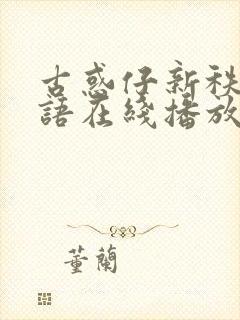 古惑仔新秩
語在綫播放
董蘭